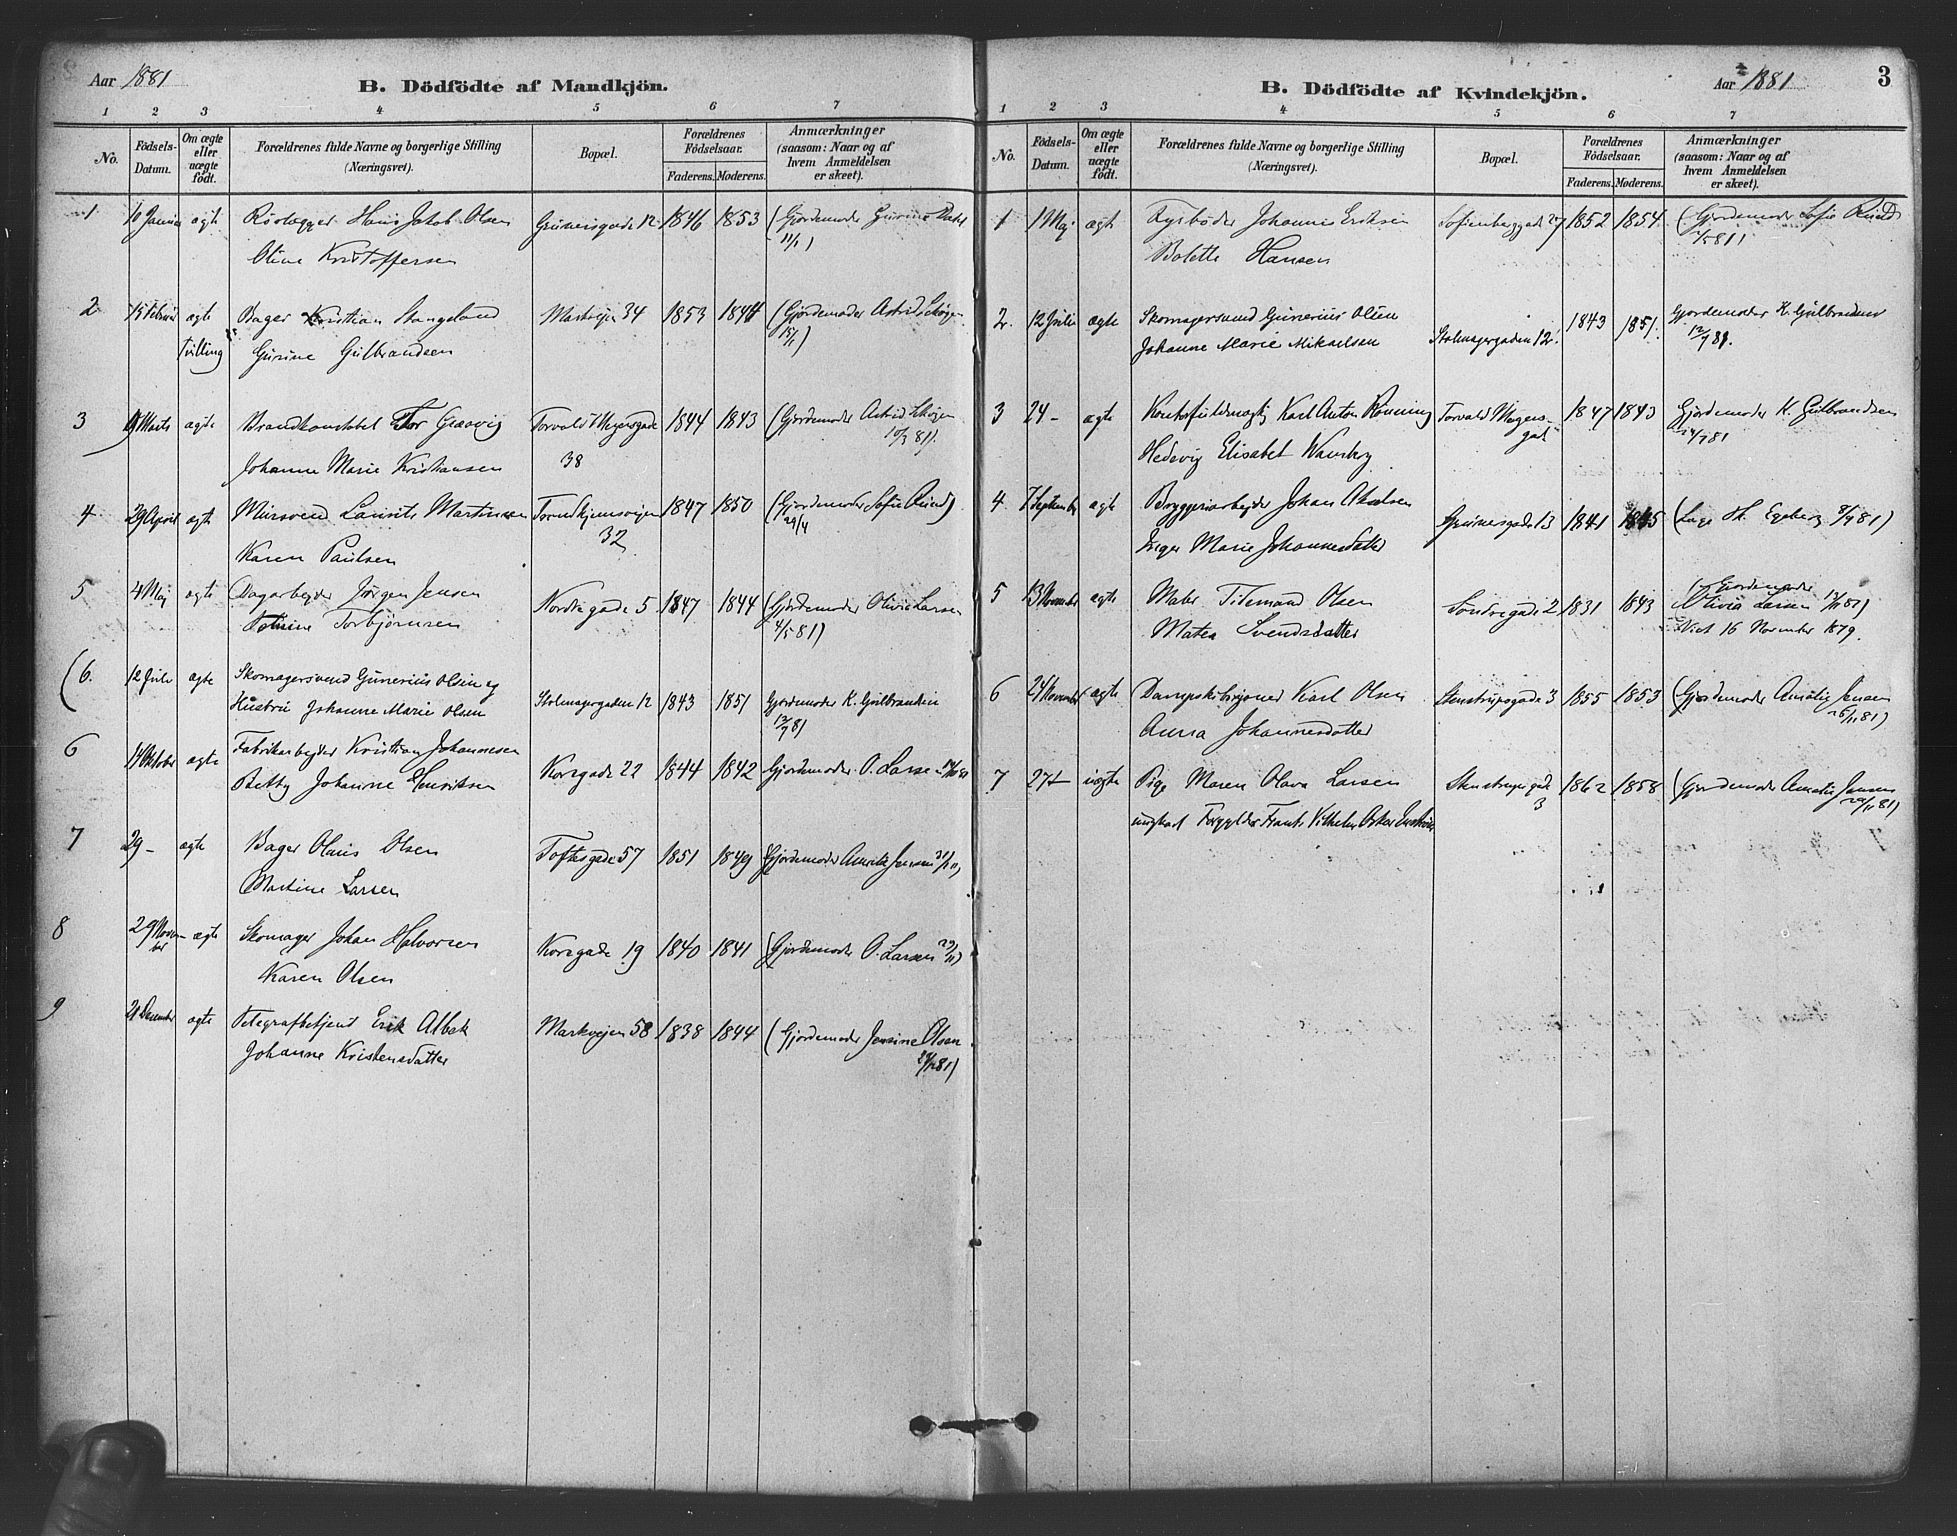 Aar 1881
B. Dödfödte af Mandkjön.
1 2 3 4 5 6 7
No. Födsels-Datum. Om ægte eller uægte födt. Forældrenes fulde Navne og borgerlige Stilling (Næringsvei). Bopæl. Forældrenes Födselsaar. Faderens. Moderens. Anmærkninger (saasom: Naar og af hvem Anmeldelsen er skeet).
1 10 Januar ægte Rörlægger Hans Jakob Olsen Grünersgade 12 1846 1853 (Gjordemoder Gurine
11/1)
Oline Kristoffersen
2 15 Februar ægte Bager Kristian Stangeland Markvejen 34 1853 1844 (Gjordemoder Astrid
Tvilling Gurine Gulbrandsen
3 Marts ægte Brandkonstabel Tor Graavig Torvald Meyersgade 1844 1843 (Gjordemoder Astrid
38
Johanne Marie Kristiansen
4 29 April ægte Mursvend Laurits Martinsen Trondhjemsvejen 1847 1850 (Gjordemoder Sofie
32 29/4
Karen Paulsen
5 4 Maj ægte Dagarbejder Jörgen Jensen Nordregade 5 1847 1844 (Gjordemoder Olivia Larsen
4/5 81)
Torbjörnsen
(6. 12 Juli ægte Skomagersvend Gunerius Olsen og
Hustru Johanne Marie Olsen Stolmagergaden 12 1843 1851 Gjordemoder K. Gulbrandsen
12/7 81
6 Oktober ægte Fabrikarbejder Kristian Johannesen
Betty Johanne Henriksen Korsgade 22 1844 1842 Gjordemoder O. Larsen
7 29 - ægte Bager Olaus Olsen Toftesgade 57 1851 1849 Gjordemoder Amalie Jensen
Martine Larsen
8 29 November ægte Skomager Johan Halvorsen Korsgade 19 1840 1841 (Gjordemoder O. Larsen 29/11)
Karen Olsen
9 December ægte Telegrafbetjent Erik Albek Markvejen 58 1838 1844 (Gjordemoder Jensine Olsen
Johanne Kristensdatter
B. Dödfödte af Kvindekjön.
Aar 1881
3
1 2 3 4 5 6 7
No. Födsels-Datum. Om ægte eller uægte födt. Forældrenes fulde Navne og borgerlige Stilling (Næringsvei). Bopæl. Forældrenes Födselsaar. Faderens. Moderens. Anmærkninger (saasom: Naar og af hvem Anmeldelsen er skeet).
1 1 Maj ægte Fyrböder Johannes Eriksen Sofienberggade 27 1852 1854 (Gjordemoder Sofie
Bolette Hansen
2. 12 Juli ægte Skomagersvend Gunerius Olsen
Johanne Marie Mikaelsen Stolmagergaden 12. 1843 1851. Gjordemoder K. Gulbrandsen
12/7 81.
3 24 - ægte Karl Anton Rönning Torvald Meyers- 1847 1843 Gjordemoder K. Gulbrandsen
gade 24/7 81
Hedevig Elisabet
4 7 September ægte Bryggeriarbejder Johan Grünersgade 13 1841 1845 (Læge Th. Egeberg 8/9 81)
Inger Marie Johannesdatter
5 13 November ægte Maler Tidemand Olsen Söndregade 2 1831 1843 (Gjordemoder
Olivia Larsen
Matea Svendsdatter Viet 16 November 1879.
6 24 November ægte Karl Olsen Stenstrupsgade 3 1855 1853 (Gjordemoder Amalie Jensen
Anna Johannesdatter
7 27 - uægte Pige Maren Olava Larsen Stenstrupsgade 1862 1858 (Gjordemoder Amalie Jensen
3
ungkarl Forgylder Frants Vilhelm Oskar